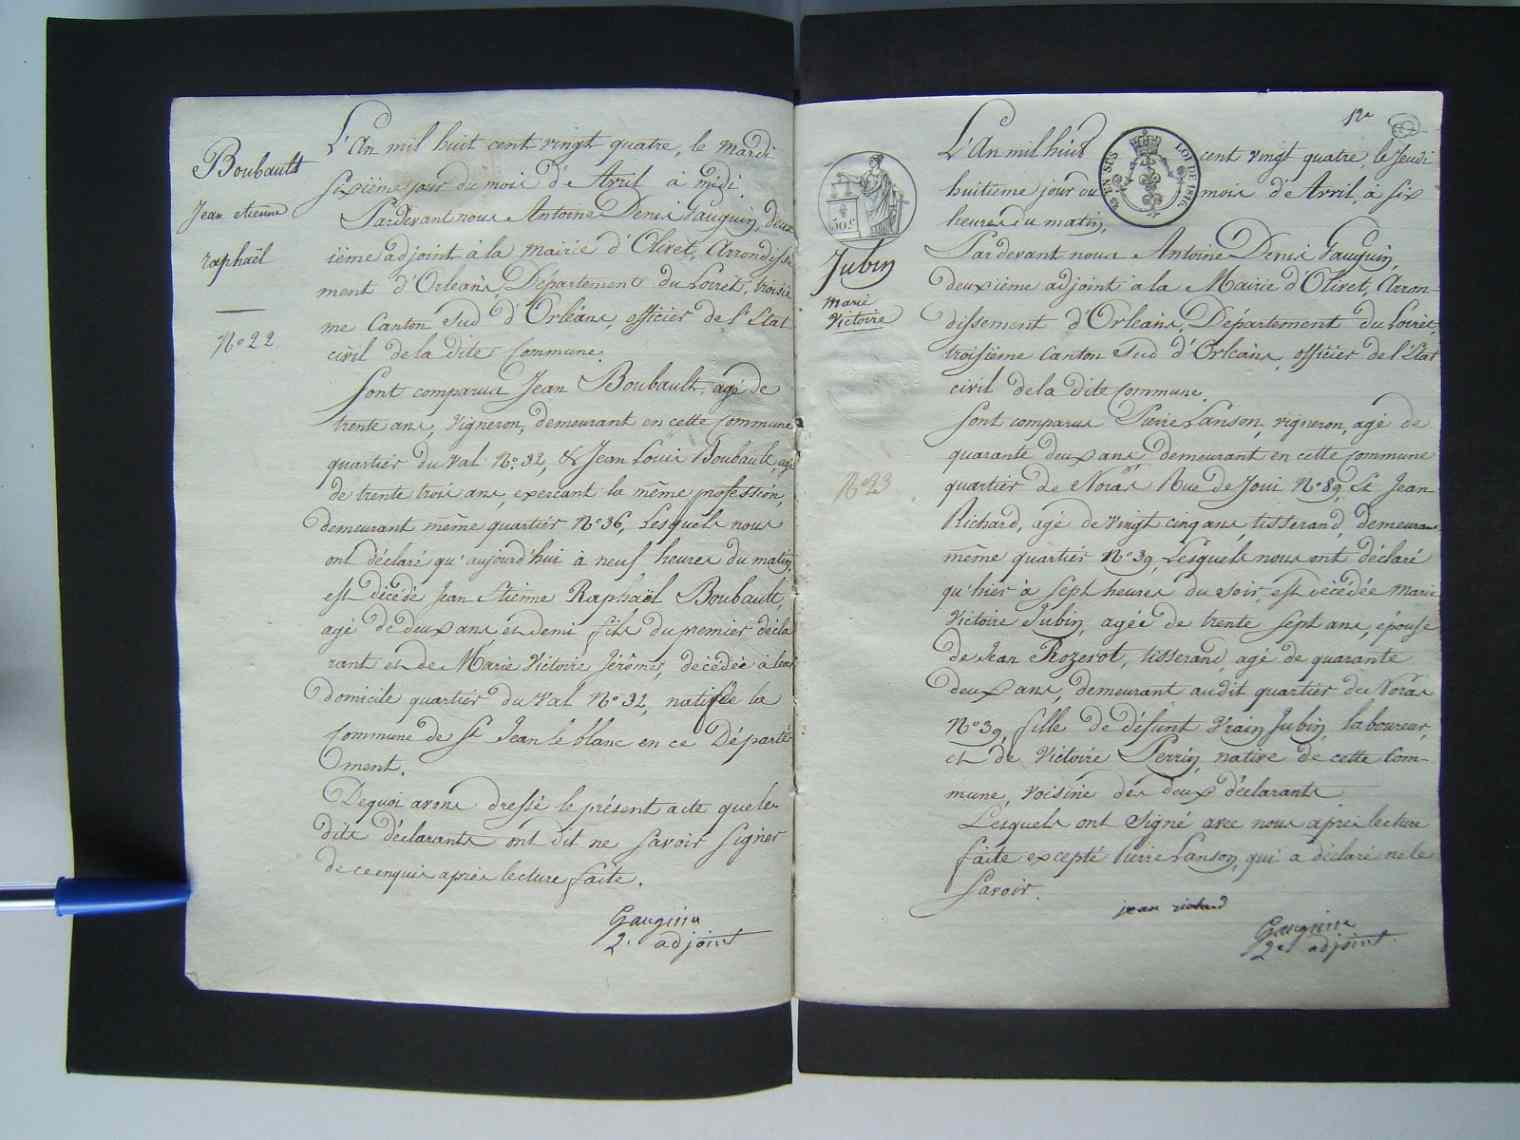 Boubault
Jean Etienne
raphaël
N° 22
L'An mil huit cent vingt quatre, le mardi
sixième jour du mois d'Avril à midi.
Pardevant nous Antoine Denis Gauguin, deux
ième adjoint à la mairie d'Olivet, Arrondisse
ment d'Orléans, Département du Loiret, troisiè
me Canton Sud d'Orléans, officier de l'Etat
civil de la dite Commune.
Sont comparus Jean Boubault, agé de
trente ans, vigneron, demeurant en cette commune
quartier du Val N° 32, & Jean Louis Boubault, agé
de trente trois ans, exerçant la même profession,
demeurant même quartier N° 36, Lesquels nous
ont déclaré qu'aujourd'hui à neuf heures du matin,
est décédé Jean Etienne Raphaël Boubault,
agé de deux ans et demi fils du premier décla
rant et de Marie Victoire Jérôme, décédée à leur
domicile quartier du Val N° 32, natif de la
Commune de St Jean le blanc en ce Départe
ment.
Dequoi avons dressé le présent acte que les
dits déclarants ont dit ne savoir signer
de ce enquis après lecture faite.
Gauguin
2e adjoint
12e
50 c
EN SUS
LOI DE 1816.
Jubin
marie
Victoire
N° 23
L'An mil huit cent vingt quatre, le Jeudi
huitième jour du mois d'Avril, à six
heures du matin,
Pardevant nous Antoine Denis Gauguin,
deuxième adjoint à la Mairie d'Olivet, Arron-
dissement d'Orléans, Département du Loiret,
troisième Canton Sud d'Orléans, officier de l'Etat
civil dela dite Commune.
Sont comparus Pierre Lanson, vigneron, agé de
quarante deux ans demeurant en cette commune
quartier de Noras Rue de Joui N° 89, Et Jean
Richard, agé de vingt cinq ans, tisserand, demeurant
même quartier N° 39, Lesquels nous ont déclaré
qu'hier à sept heures du soir, est décédée Marie
Victoire Jubin, agée de trente sept ans, épouse
de Jean Rozerot, tisserand, agé de quarante
deux ans, demeurant audit quartier du Noras
N° 39, fille de défunt Vrain Jubin, laboureur,
et de Victoire Perrin, native de cette Com-
mune, voisine des deux déclarants
Lesquels ont signé avec nous après lecture
faite excepté Pierre Lanson, qui a déclaré ne le
savoir.
jean richard
Gauguin
2e adjoint